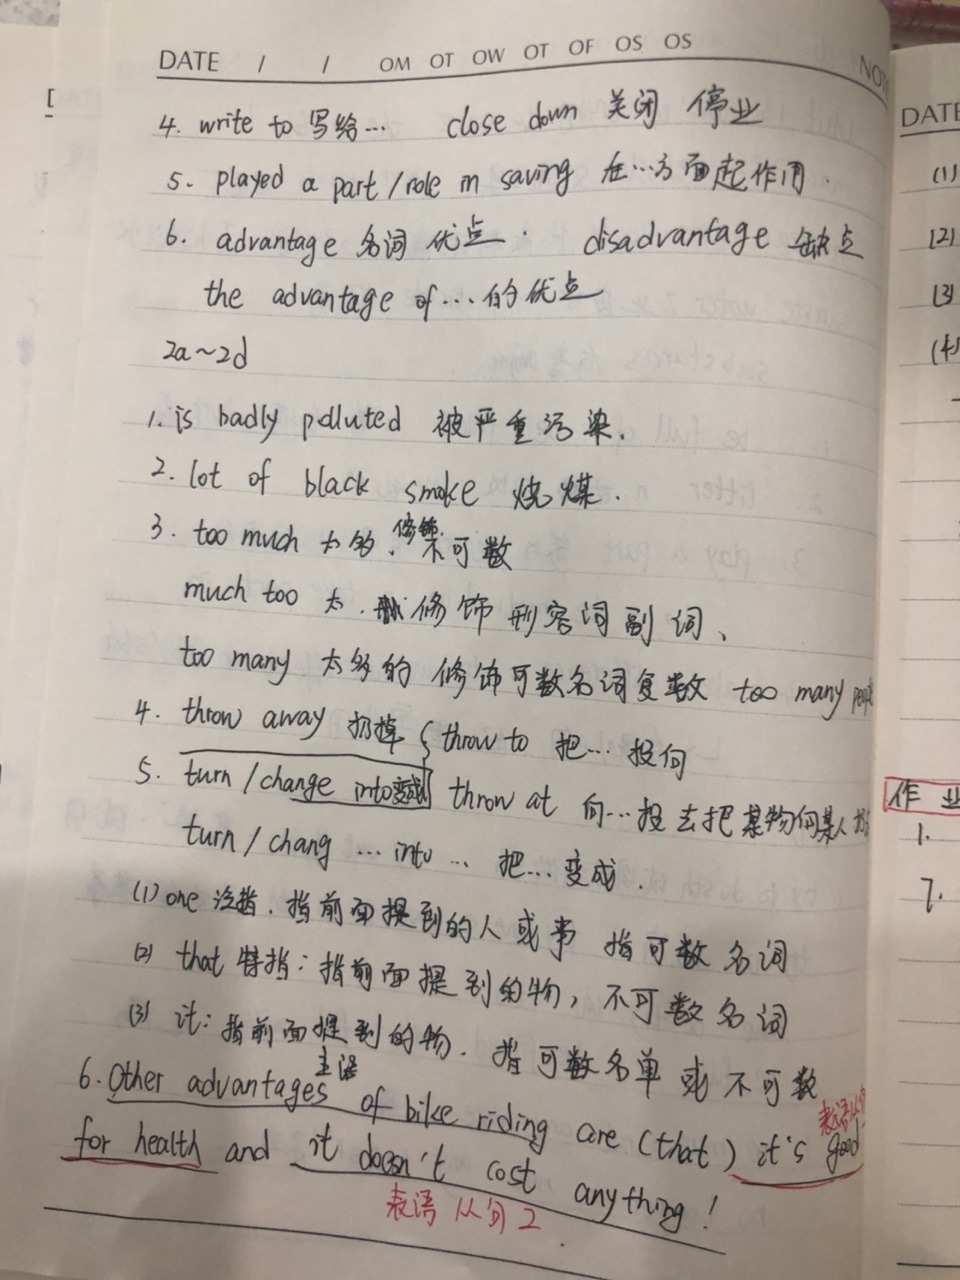 DATE / / OM OT OW OT OF OS OS
4. write to 写给… close down 关闭 停业
5. played a part/role in saving 在…方面起作用.
6. advantage 名词 优点. disadvantage 缺点
the advantage of…的优点
2a~2d
1. is badly polluted 被严重污染.
2. lot of black smoke 烧煤.
3. too much 太多. 修饰 不可数
much too 太. 修饰 形容词副词、
too many 太多的 修饰可数名词复数 too many
4. throw away 扔掉 { throw to 把…投向
5. turn/change into变成 throw at 向…投去把某物向某人
turn/chang … into … 把…变成.
(1) one 泛指. 指前面提到的人或事 指可数名词
(2) that 特指: 指前面提到的物, 不可数名词
(3) it: 指前面提到的物. 指可数名单或不可数
主语
6. Other advantages of bike riding are (that) it's good
表语从句
for health and it doesn't cost anything!
表语从句2
DATE
(1)
(2)
(3)
(4)
作业
1.
7.